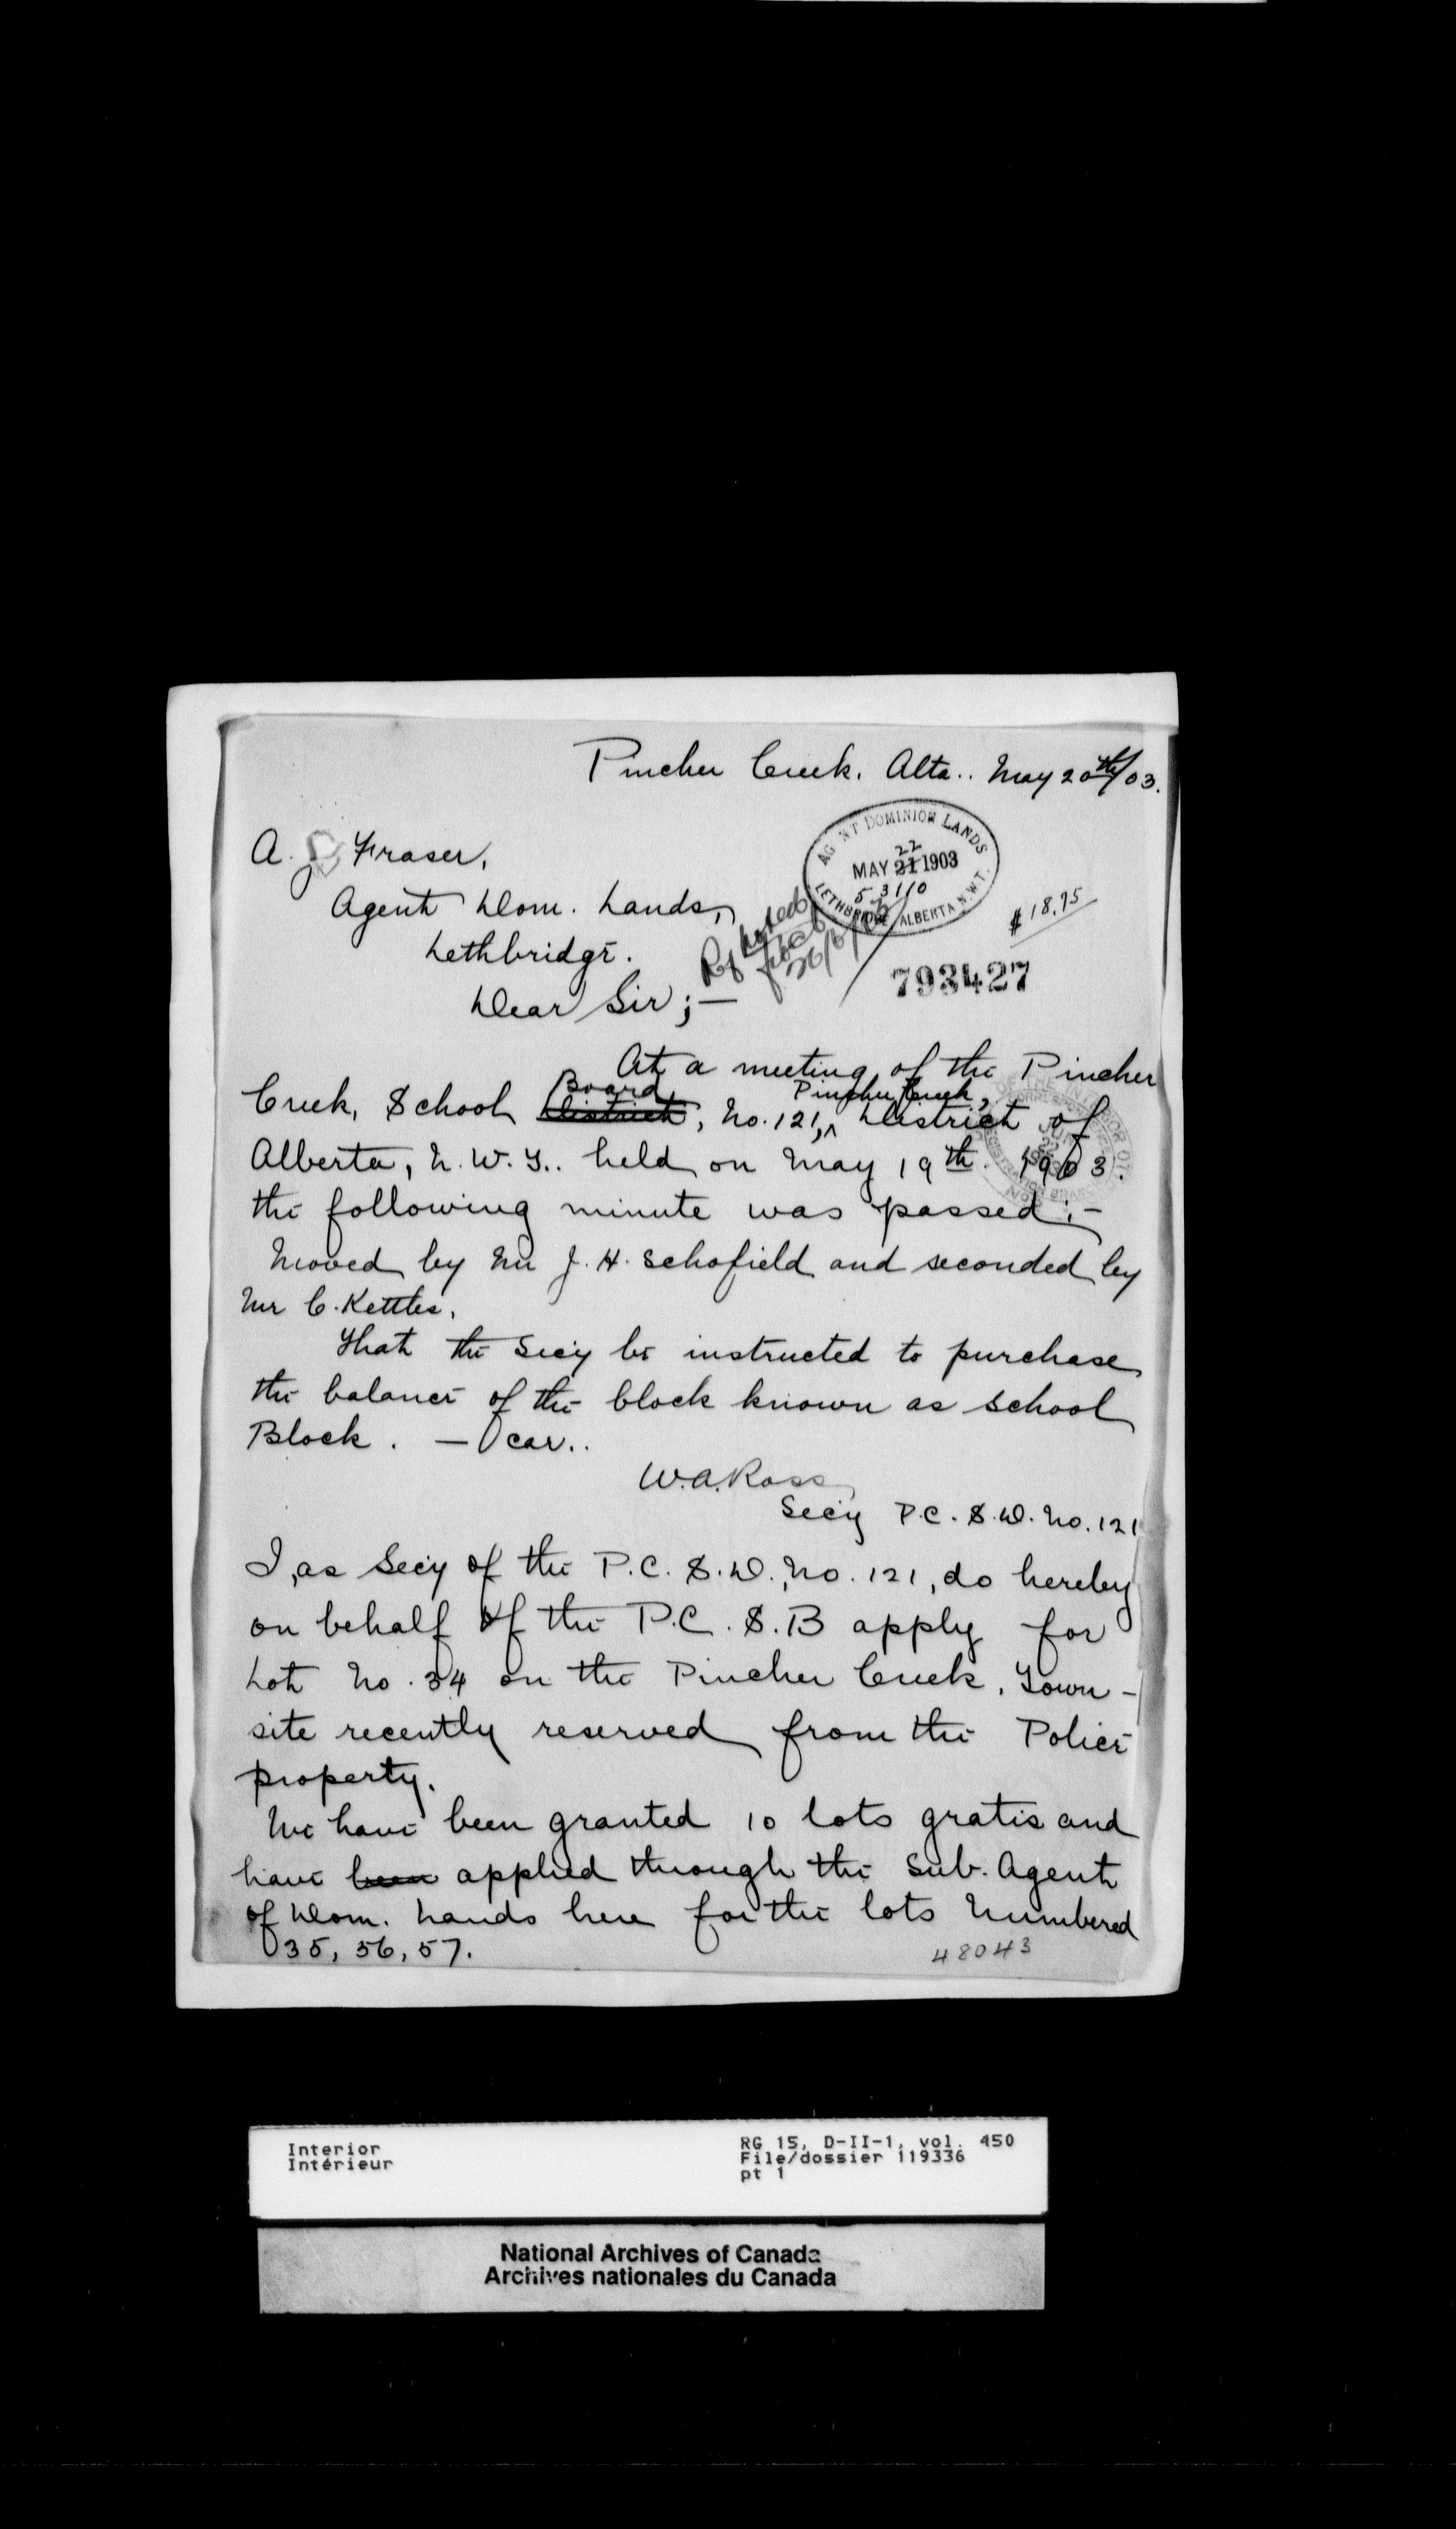 Pincher Creek. Alta.. May 20th/03.
A. Fraser,
Agent Dom. Lands,
Lethbridge.
Dear Sir;—
AGENT DOMINION LANDS
22
MAY 21 1903
53110
LETHBRIDGE ALBERTA N.W.T.
$18.75
793427
At a meeting of the Pincher
Creek, School District Board, No. 121, Pincher Creek, District of
Alberta, N.W.T.. held on May 19th. 1903.
the following minute was passed:—
Moved by Mr J. H. Schofield and seconded by
Mr C. Kettles.
That the Sec'y be instructed to purchase
the balance of the block known as School
Block. — Car..
W.A. Ross
Sec'y P.C. S.D. No. 121
I, as Sec'y of the P.C. S.D., No. 121, do hereby
on behalf of the P.C. S.B apply for
Lot No. 34 on the Pincher Creek, Town-
site recently reserved from the Police
property.
We have been granted 10 lots gratis and
have been applied through the Sub. Agent
of Dom. Lands here for the lots numbered
35, 56, 57.
48043
Interior
Intérieur
RG 15, D-II-1, vol. 450
File/dossier 119336
pt 1
National Archives of Canada
Archives nationales du Canada